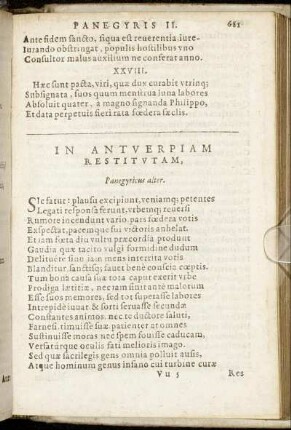 PANEGYRIS II. 681
Ante fidem sancto, siqua est reuerentia. iure-
Iurando obstringat, populis hostilibus vno
Consultor malus auxilium ne conferat anno.
XXVIII.
Hæc sunt pacta, viri, quæ dux curabit vtrinq;
Subsignata, suos quum mentirua luna labores
Absoluit quater, a magno signanda Philippo,
Et data perpetuis fieri rata fœdera sæclis.
IN ANTVERPIAM
RESTITVTAM,
Panegyricus alter.
SIc fatur: plausu excipiunt, veniamq; petentes
Legati responsa ferunt, vrbemq; reuersi
Rumore incendunt vario. pars fœdera votis
Exspectat, pacemque sui victoris anhelat.
Et iam fœta diu vultu præcordia produnt
Gaudia quæ tacito vulgi formidine dudum
Delituere sinu iam mens interrita votis
Blanditur, sanctisq; fauet bene conscia cœptis.
Tum bona causa suæ tota caput exerit vrbe
Prodiga lætitiæ, nec iam suirante malorum
Esse suos memores, sed tot superasse labores
Intrepide iuuat & sorti seruasse secundæ
Constantes animos. nec te ductore saluti,
Farnesi, timuisse suæ patienter at omnes
Sustinuisse moras nec spem fouisse caducam,
Versaturque oculis fati melioris imago.
Sed quæ sacrilegis gens omnia polluit ausis,
Atque hominum genus insano cui turbine curæ
Vu 5 Res